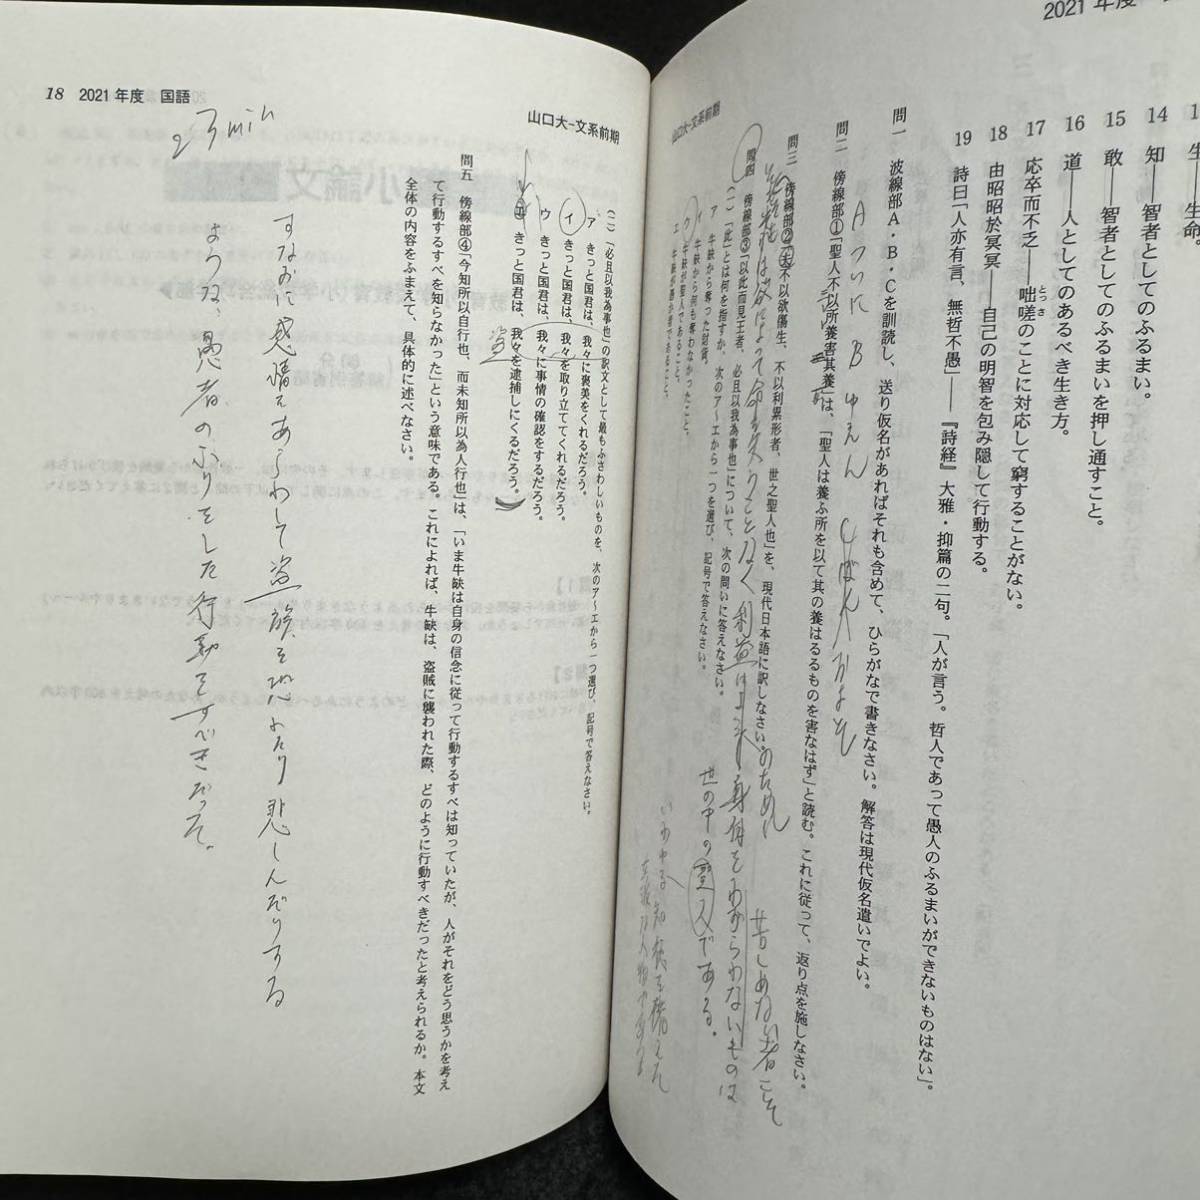 2021年度
生――生命。
14 知――智者としてのふるまい。
15 敢――智者としてのふるまいを押し通すこと。
16 道――人としてのあるべき生き方。
17 応卒而不乏――咄嗟のことに対応して窮することがない。
とっさ
18 由昭昭於冥冥――自己の明智を包み隠して行動する。
19 詩曰「人亦有言、無哲不愚」――『詩経』大雅・抑篇の二句。「人が言う。哲人であって愚人のふるまいができないものはない」。
問一 波線部A・B・Cを訓読し、送り仮名があればそれも含めて、ひらがなで書きなさい。解答は現代仮名遣いでよい。
Aついに Bゆえん
問二 傍線部①「聖人不以所養害其養」は、「聖人は養ふ所を以て其の養はるるものを害なはず」と読む。これに従って、返り点を施しなさい。
問三 傍線部②「夫不以欲傷生、不以利累形者、世之聖人也」を、現代日本語に訳しなさい。
のために
苦しめない者こそ
世の中の聖人である。
問四 傍線部③「以此而見王者、必且以我為事也」について、次の問いに答えなさい。
(一)「此」とは何を指すか、次のア〜エから一つを選び、記号で答えなさい。
ア 牛缺から奪った財貨。
イ 牛缺から何も奪わなかったこと。
ウ 牛缺が聖人であること。
エ 牛缺が愚か者であること。
山口大-文系前期
18 2021年度 国語
23min
山口大-文系前期
(二)「必且以我為事也」の訳文として最もふさわしいものを、次のア〜エから一つ選び、記号で答えなさい。
ア きっと国君は、我々に褒美をくれるだろう。
イ きっと国君は、我々を取り立ててくれるだろう。
ウ きっと国君は、我々に事情の確認をするだろう。
エ きっと国君は、我々を逮捕しにくるだろう。
盗
問五 傍線部④「今知所以自行也、而未知所以為人行也」は、「いま牛缺は自身の信念に従って行動するすべは知っていたが、人がそれをどう思うかを考え
て行動するすべを知らなかった」という意味である。これによれば、牛缺は、盗賊に襲われた際、どのように行動すべきだったと考えられるか。本文
全体の内容をふまえて、具体的に述べなさい。
すなおに感情をあらわして盗賊を恐れたり悲しんだりする
ような、愚者のふりをした行動をすべきだった。